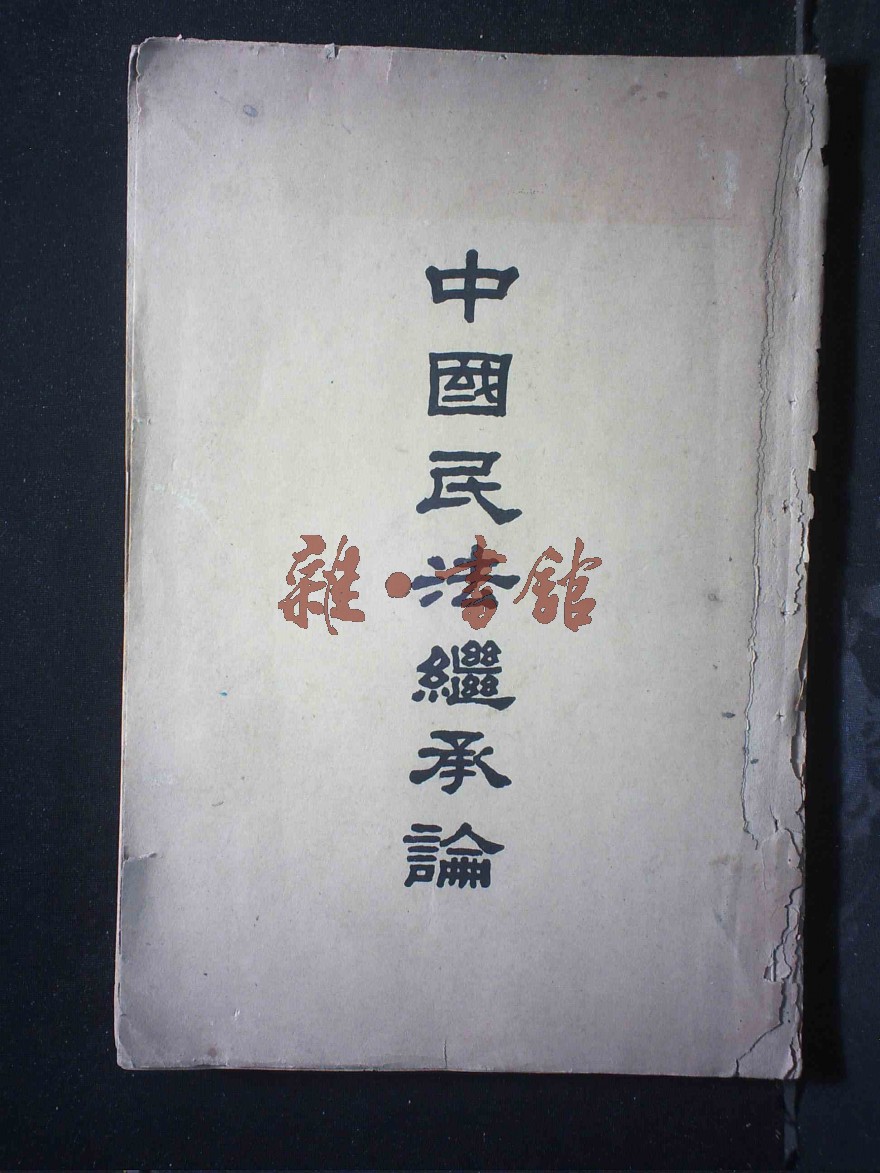 中國民法繼承論
雜·書館